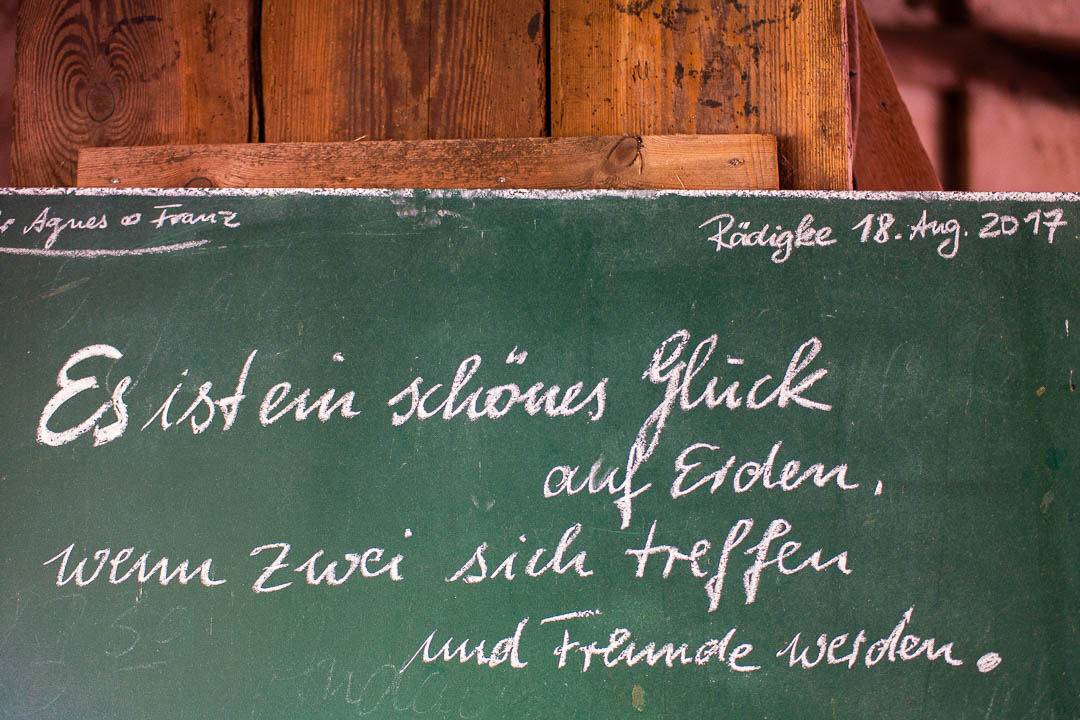 Agnes ∞ Franz
Rädigke 18. Aug. 2017
Es ist ein schönes Glück
auf Erden,
wenn zwei sich treffen
und Freunde werden.